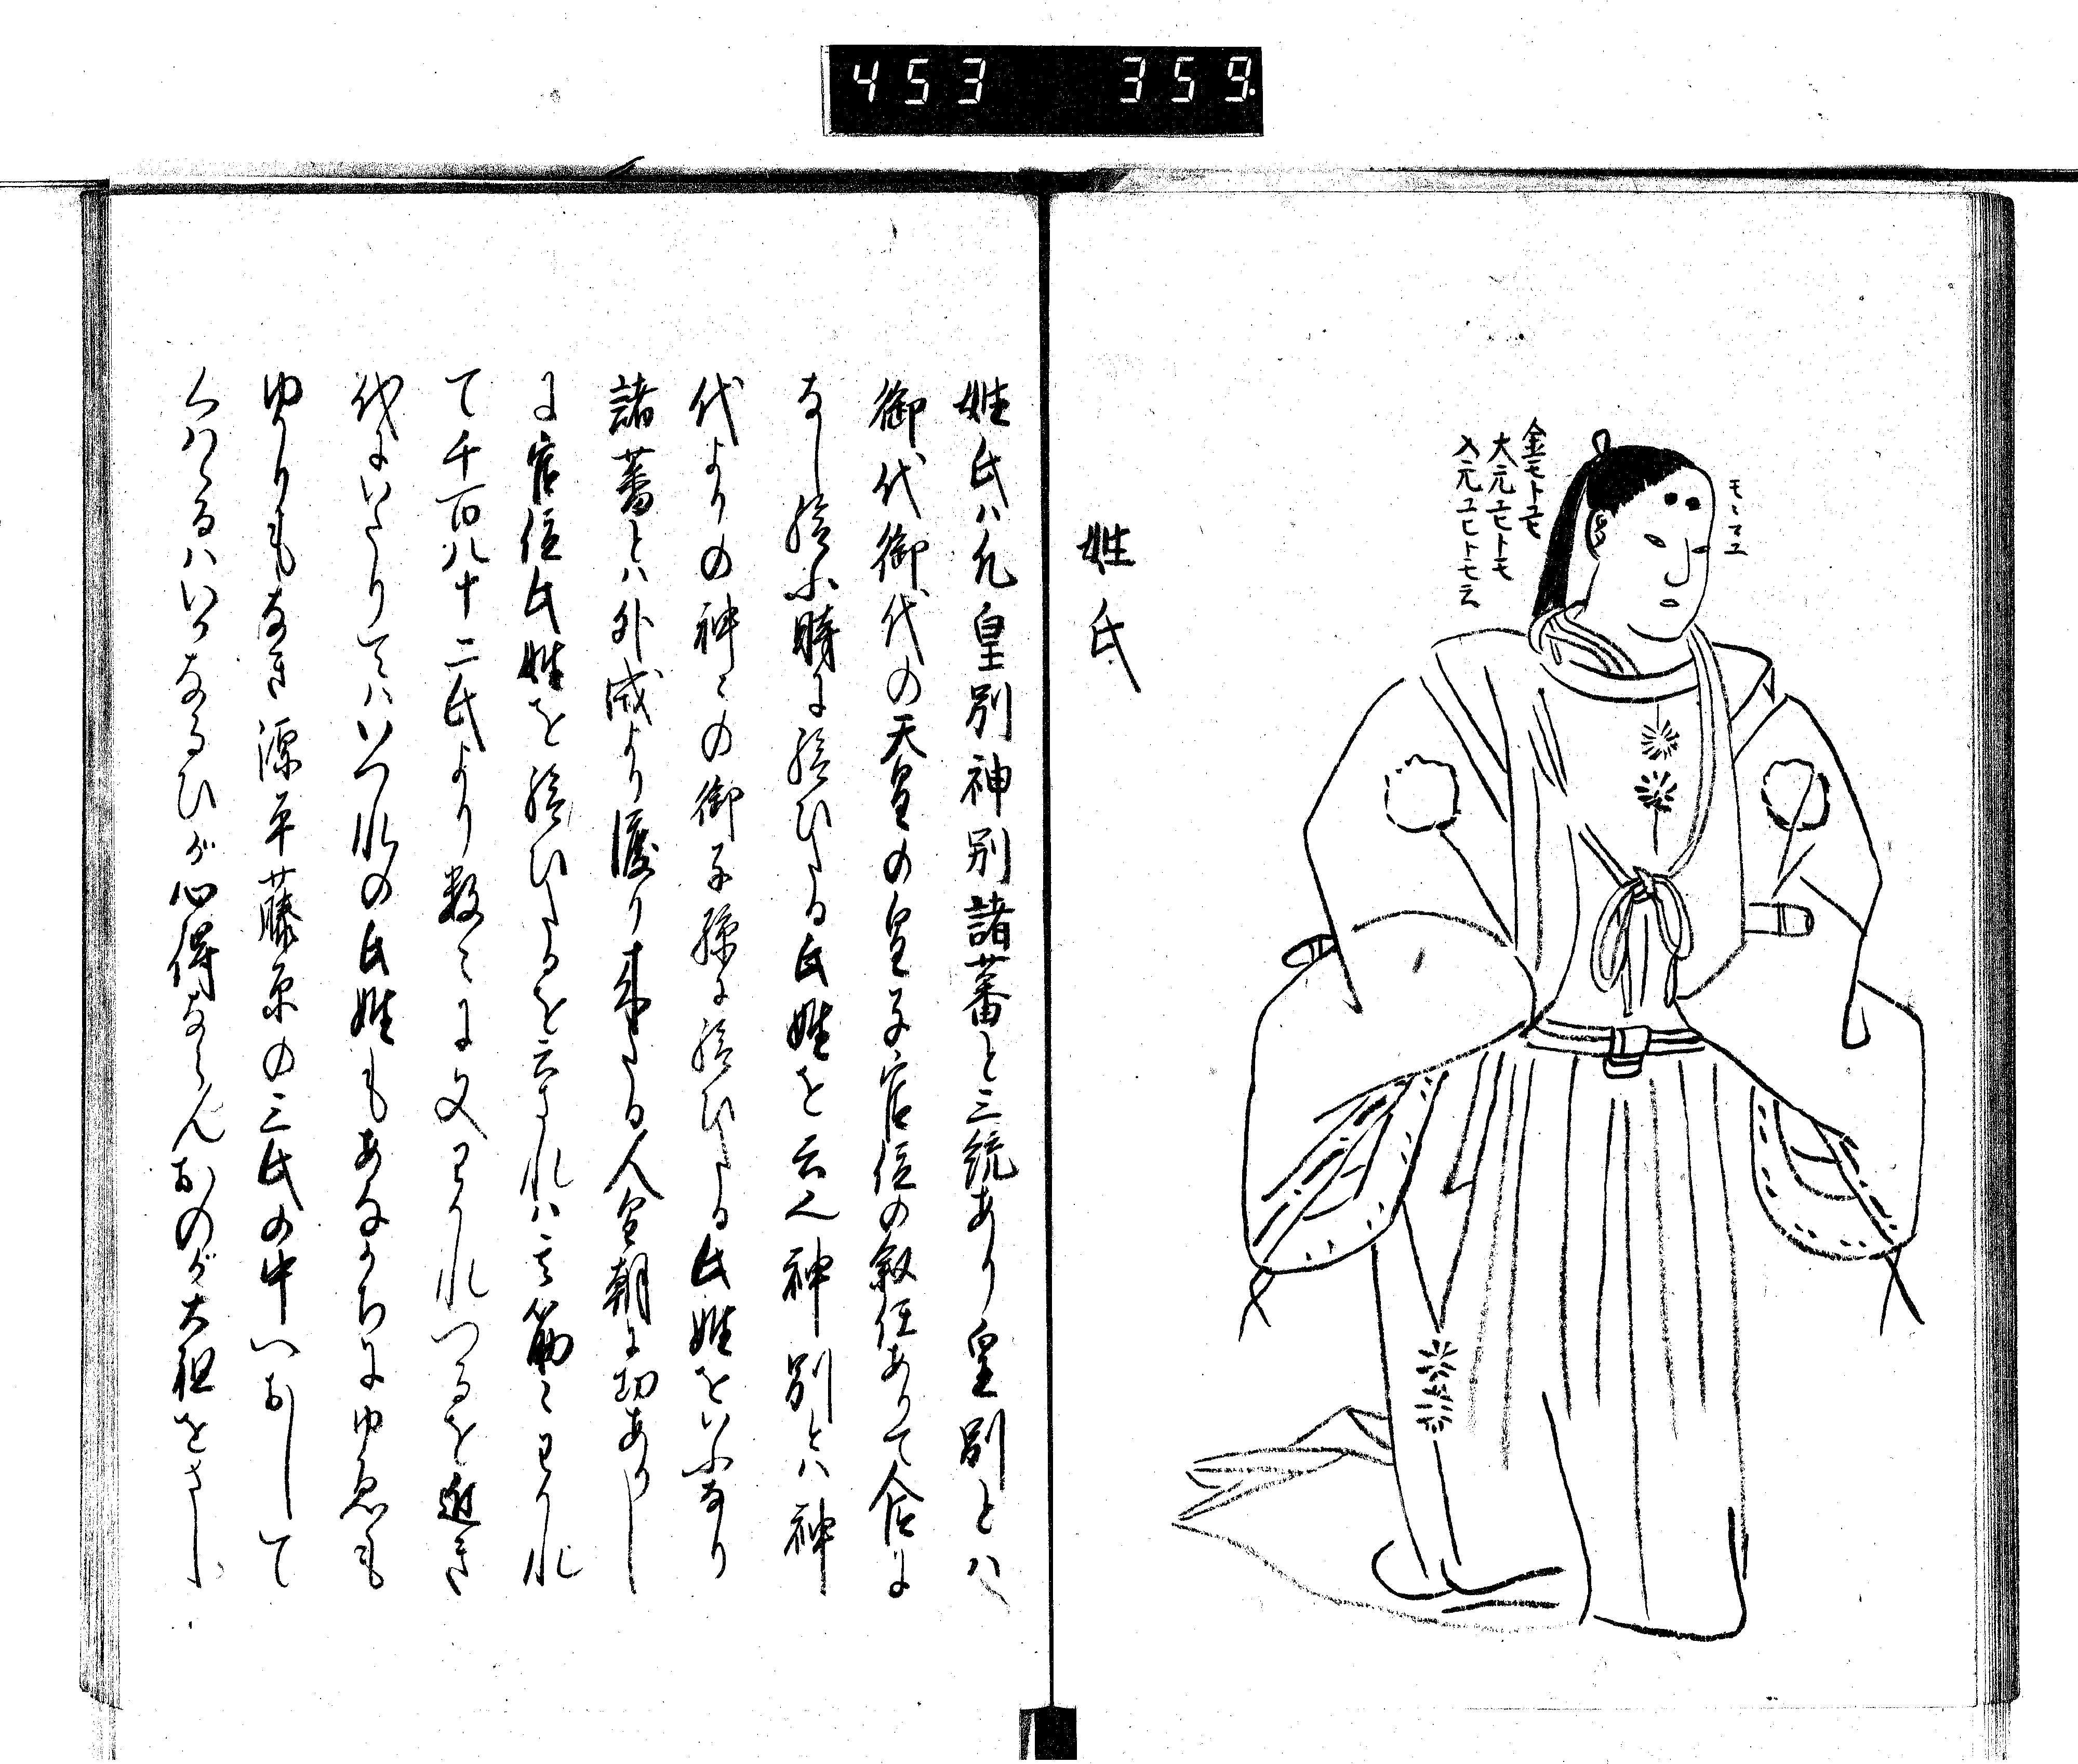 453 359
金モトユヒ
大元ユヒトモ
入元ユヒトモ云
姓氏
姓氏ハ凡皇別神別諸蕃と三統あり皇別とハ
御代御代の天皇の皇子官位の叙任ありて合に
なし給ふ時に給ひたる氏姓を云神別とハ神
代よりの神々の御子孫に給ひたる氏姓をいふなり
諸蕃とハ外戚より渡り来たる人皇朝に功ありし
に官位氏姓を給ひたるを云されハ其筋々わかれ
て千百八十二氏より数々に又わかれつるを近き
代にいたりてハいつれの氏姓もあなかちにゆゑも
ゆかりもなき源平藤原の三氏の中へおして
くはゝるハいかなるひが心得ならんおのが大祖をさし